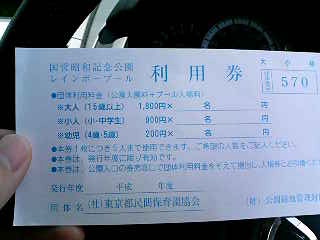 国営昭和記念公園
レインボープール
利用券
大 小 幼
570
●団体利用料金（公園入園料＋プール入場料）
※大人（15歳以上） 1,800円× 名 円
※小人（小・中学生） 900円× 名 円
※幼児（4歳・5歳） 200円× 名 円
●本券1枚につき5人まで使用できます。ご希望の人数をご記入ください。
●本券は、発行年度に限り有効です。
●本券は、公園入口の券売所にて団体利用料金をそえて提出し、入場券と
発行年度 平成 年度
団体名 (社)東京都民間保育園協会
(財)公園緑地管理財団